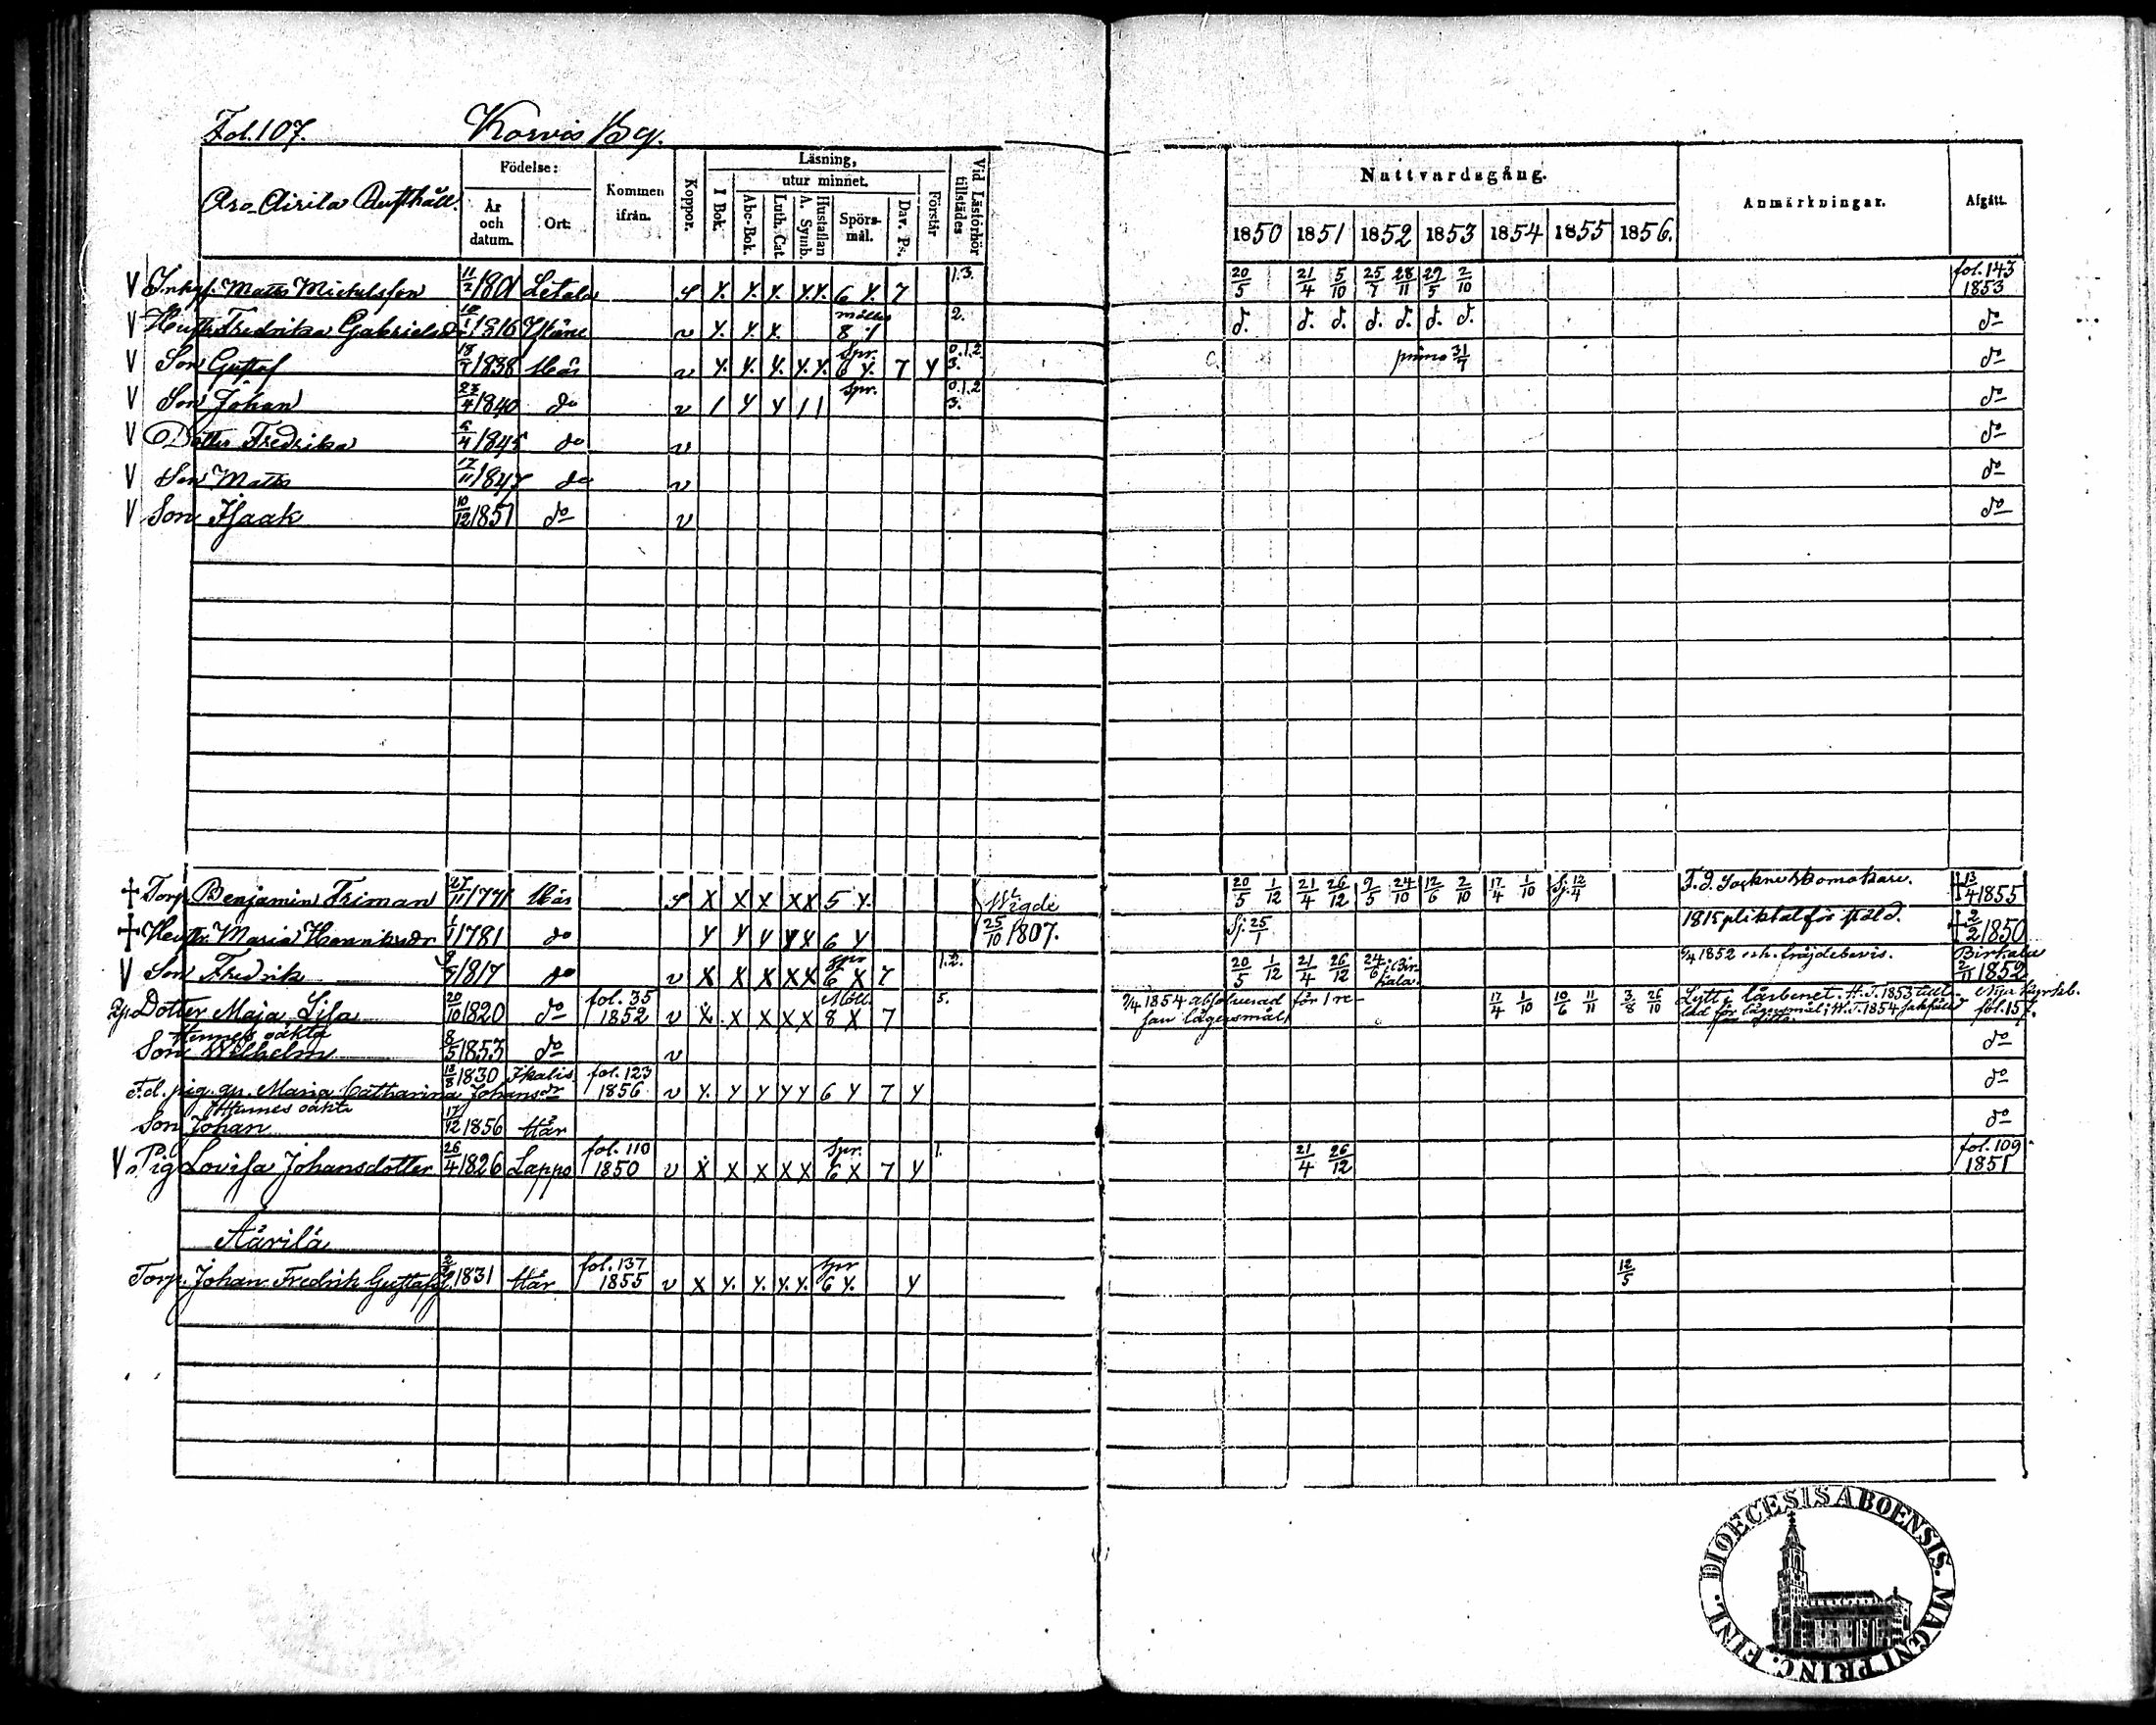 Fol. 107. Korvis By.
Aro-Airila Rusthåll.
Födelse:
År och datum.
Ort:
Kommen ifrån.
Koppor.
Läsning,
utur minnet.
I Bok.
Abc-Bok.
Luth. Cat.
Hustaflan A. Symb.
Spörs-mål.
Dav. Ps.
Förstår
Vid Läsförhör tillstädes
Nattvardsgång.
1850 1851 1852 1853 1854 1855 1856.
Anmärkningar.
Afgått.
V Matts Michelsson 11/2 1801 Letala Y. Y. Y. Y.Y. 6 Y. 7 1.3. 20/5 21/4 5/10 25/7 28/11 29/5 2/10 fol. 143 1853
V Hustr. Fredrika Gabrielsd. 1816 v Y. Y. Y. 8 2. d. d. d. d. d. d. d. do
V Son Gustaf 1838 v Y. Y. Y. Y.Y. Spr. 6 Y. 7 Y 0.1.2. 3. primo 31/7 do
V Son Johan 23/4 1840 do v / Y Y / / Spr. 0.1.2 3. do
V Dotter Fredrika 6/4 1845 do v do
V Son Matts 17/11 1847 do v do
V Son Isaak 10/12 1851 do v do
+ Torp. Benjamin Friman 27/11 1771 X X X XX 5 Y. Wigde 20/5 1/12 21/4 26/12 9/5 24/10 12/6 2/10 17/4 1/10 Sj. 12/4 F.d. Sockne skomakare. + 13/4 1855
+ Hustr. Maria Henriksdr 1/1 1781 do Y Y Y YX 6 Y 25/10 1807. Sj. 25/1 1815 pliktat för stöld. + 2/2 1850
V Son Fredrik 1817 do v X X X XX Spr 6 X 7 1.2. 20/5 1/12 21/4 26/12 24/6 i Birkala. 1852 erh. fräjdebevis. Birkala 2/11 1852
Dotter Maja Lisa 20/10 1820 do fol. 35 1852 v X X X XX Måll. 8 X 7 5. 1854 absolverad för 1 resan lägersmål 17/4 1/10 10/6 11/11 3/8 26/10 Lytt i lårbenet. H.T. 1853 för lägersmål; H.T. 1854 Nya Kyrkob. fol. 157.
Hennes oäkta
Son Wilhelm 8/5 1853 do v do
F.d. pig. Maria Catharina Johansdr 18/8 1830 Ikalis fol. 123 1856 v Y. Y Y YY 6 Y 7 Y do
Hennes oäkta
Son Johan 17/12 1856 Hår do
V Pig Lovisa Johansdotter 26/4 1826 Lappo fol. 110 1850 v X X X XX Spr. 6 X 7 Y 1. 21/4 26/12 fol. 109 1851
Äärilä
Torp. Johan Fredrik Gustafss. 1831 Hår fol. 137 1855 v X Y. Y. Y.Y. Spr 6 Y. Y 12/5
DIOECESIS ABOENSIS. MAGNI PRINC. FINL.